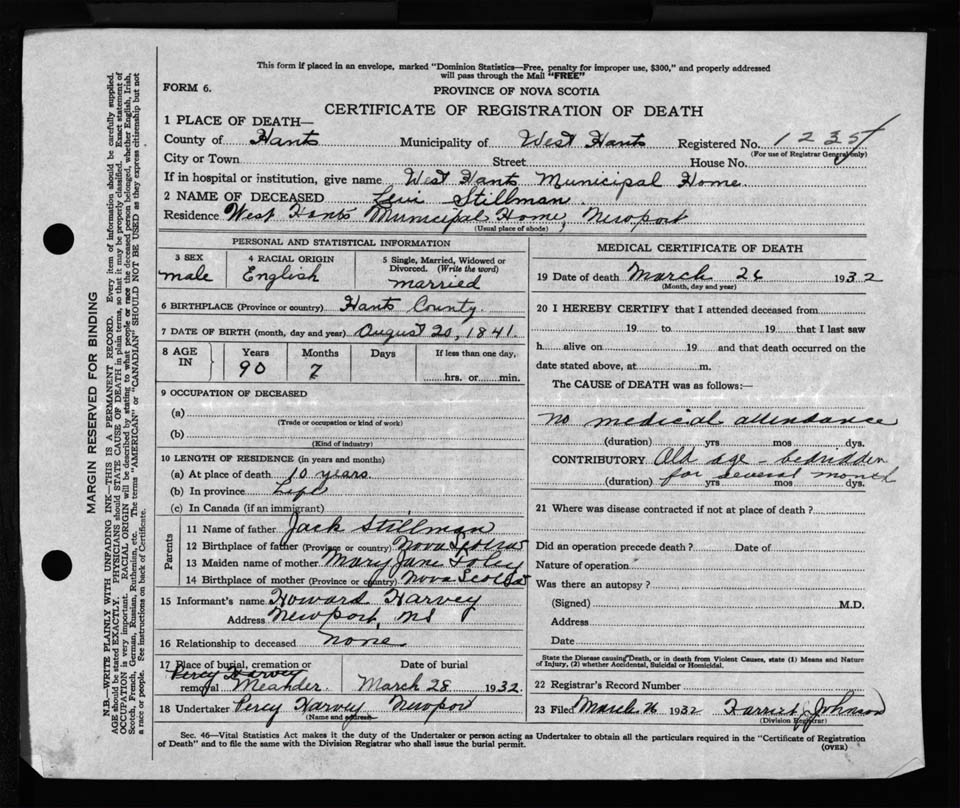 This form if placed in an envelope, marked "Dominion Statistics—Free, penalty for improper use, $300," and properly addressed
will pass through the Mail "FREE"
FORM 6.
PROVINCE OF NOVA SCOTIA
CERTIFICATE OF REGISTRATION OF DEATH
1 PLACE OF DEATH—
County of Hants Municipality of West Hants Registered No. 1235
(For use of Registrar General only)
City or Town Street House No.
If in hospital or institution, give name West Hants Municipal Home.
2 NAME OF DECEASED Levi Stillman
Residence West Hants Municipal Home, Newport
(Usual place of abode)
PERSONAL AND STATISTICAL INFORMATION
3 SEX
male
4 RACIAL ORIGIN
English
5 Single, Married, Widowed or
Divorced. (Write the word)
married
6 BIRTHPLACE (Province or country) Hants County.
7 DATE OF BIRTH (month, day and year) August 20, 1841.
8 AGE
IN
Years Months Days If less than one day,
90 7 hrs. or min.
9 OCCUPATION OF DECEASED
(a)
(Trade or occupation or kind of work)
(b)
(Kind of industry)
10 LENGTH OF RESIDENCE (in years and months)
(a) At place of death 10 years.
(b) In province Life
(c) In Canada (if an immigrant)
Parents
11 Name of father Jack Stillman
12 Birthplace of father (Province or country) Nova Scotia
13 Maiden name of mother Mary Jane Foley
14 Birthplace of mother (Province or country) Nova Scotia
15 Informant's name Howard Harvey
Address Newport, NS
16 Relationship to deceased none
17 Place of burial, cremation or
Percy Harvey
removal Meander.
Date of burial
March 28 1932.
18 Undertaker Percy Harvey Newport
(Name and address)
MEDICAL CERTIFICATE OF DEATH
19 Date of death March 26 1932
(Month, day and year)
20 I HEREBY CERTIFY that I attended deceased from
19 to 19 that I last saw
h alive on 19 and that death occurred on the
date stated above, at m.
The CAUSE of DEATH was as follows:—
no medical attendance
(duration) yrs mos dys.
CONTRIBUTORY Old age - bedridden
for several months
(duration) yrs mos dys.
21 Where was disease contracted if not at place of death?
Did an operation precede death? Date of
Nature of operation
Was there an autopsy?
(Signed) M.D.
Address
Date
State the Disease causing Death, or in death from Violent Causes, state (1) Means and Nature
of Injury, (2) whether Accidental, Suicidal or Homicidal.
22 Registrar's Record Number
23 Filed March 26 1932 Harriet Johnson
(Division Registrar)
Sec. 46—Vital Statistics Act makes it the duty of the Undertaker or person acting as Undertaker to obtain all the particulars required in the "Certificate of Registration
of Death" and to file the same with the Division Registrar who shall issue the burial permit.
(OVER)
MARGIN RESERVED FOR BINDING
N.B.—WRITE PLAINLY WITH UNFADING INK—THIS IS A PERMANENT RECORD. Every item of information should be carefully supplied.
AGE should be stated EXACTLY. PHYSICIANS should STATE CAUSE OF DEATH in plain terms, so that it may be properly classified. Exact statement of
OCCUPATION is very important. RACIAL ORIGIN will be described by stating to what people or race the deceased person belonged, whether English, Irish,
Scotch, French, German, Russian, Ruthenian, etc. The terms "AMERICAN" or "CANADIAN" SHOULD NOT BE USED as they express citizenship but not
a race or people. See instructions on back of Certificate.